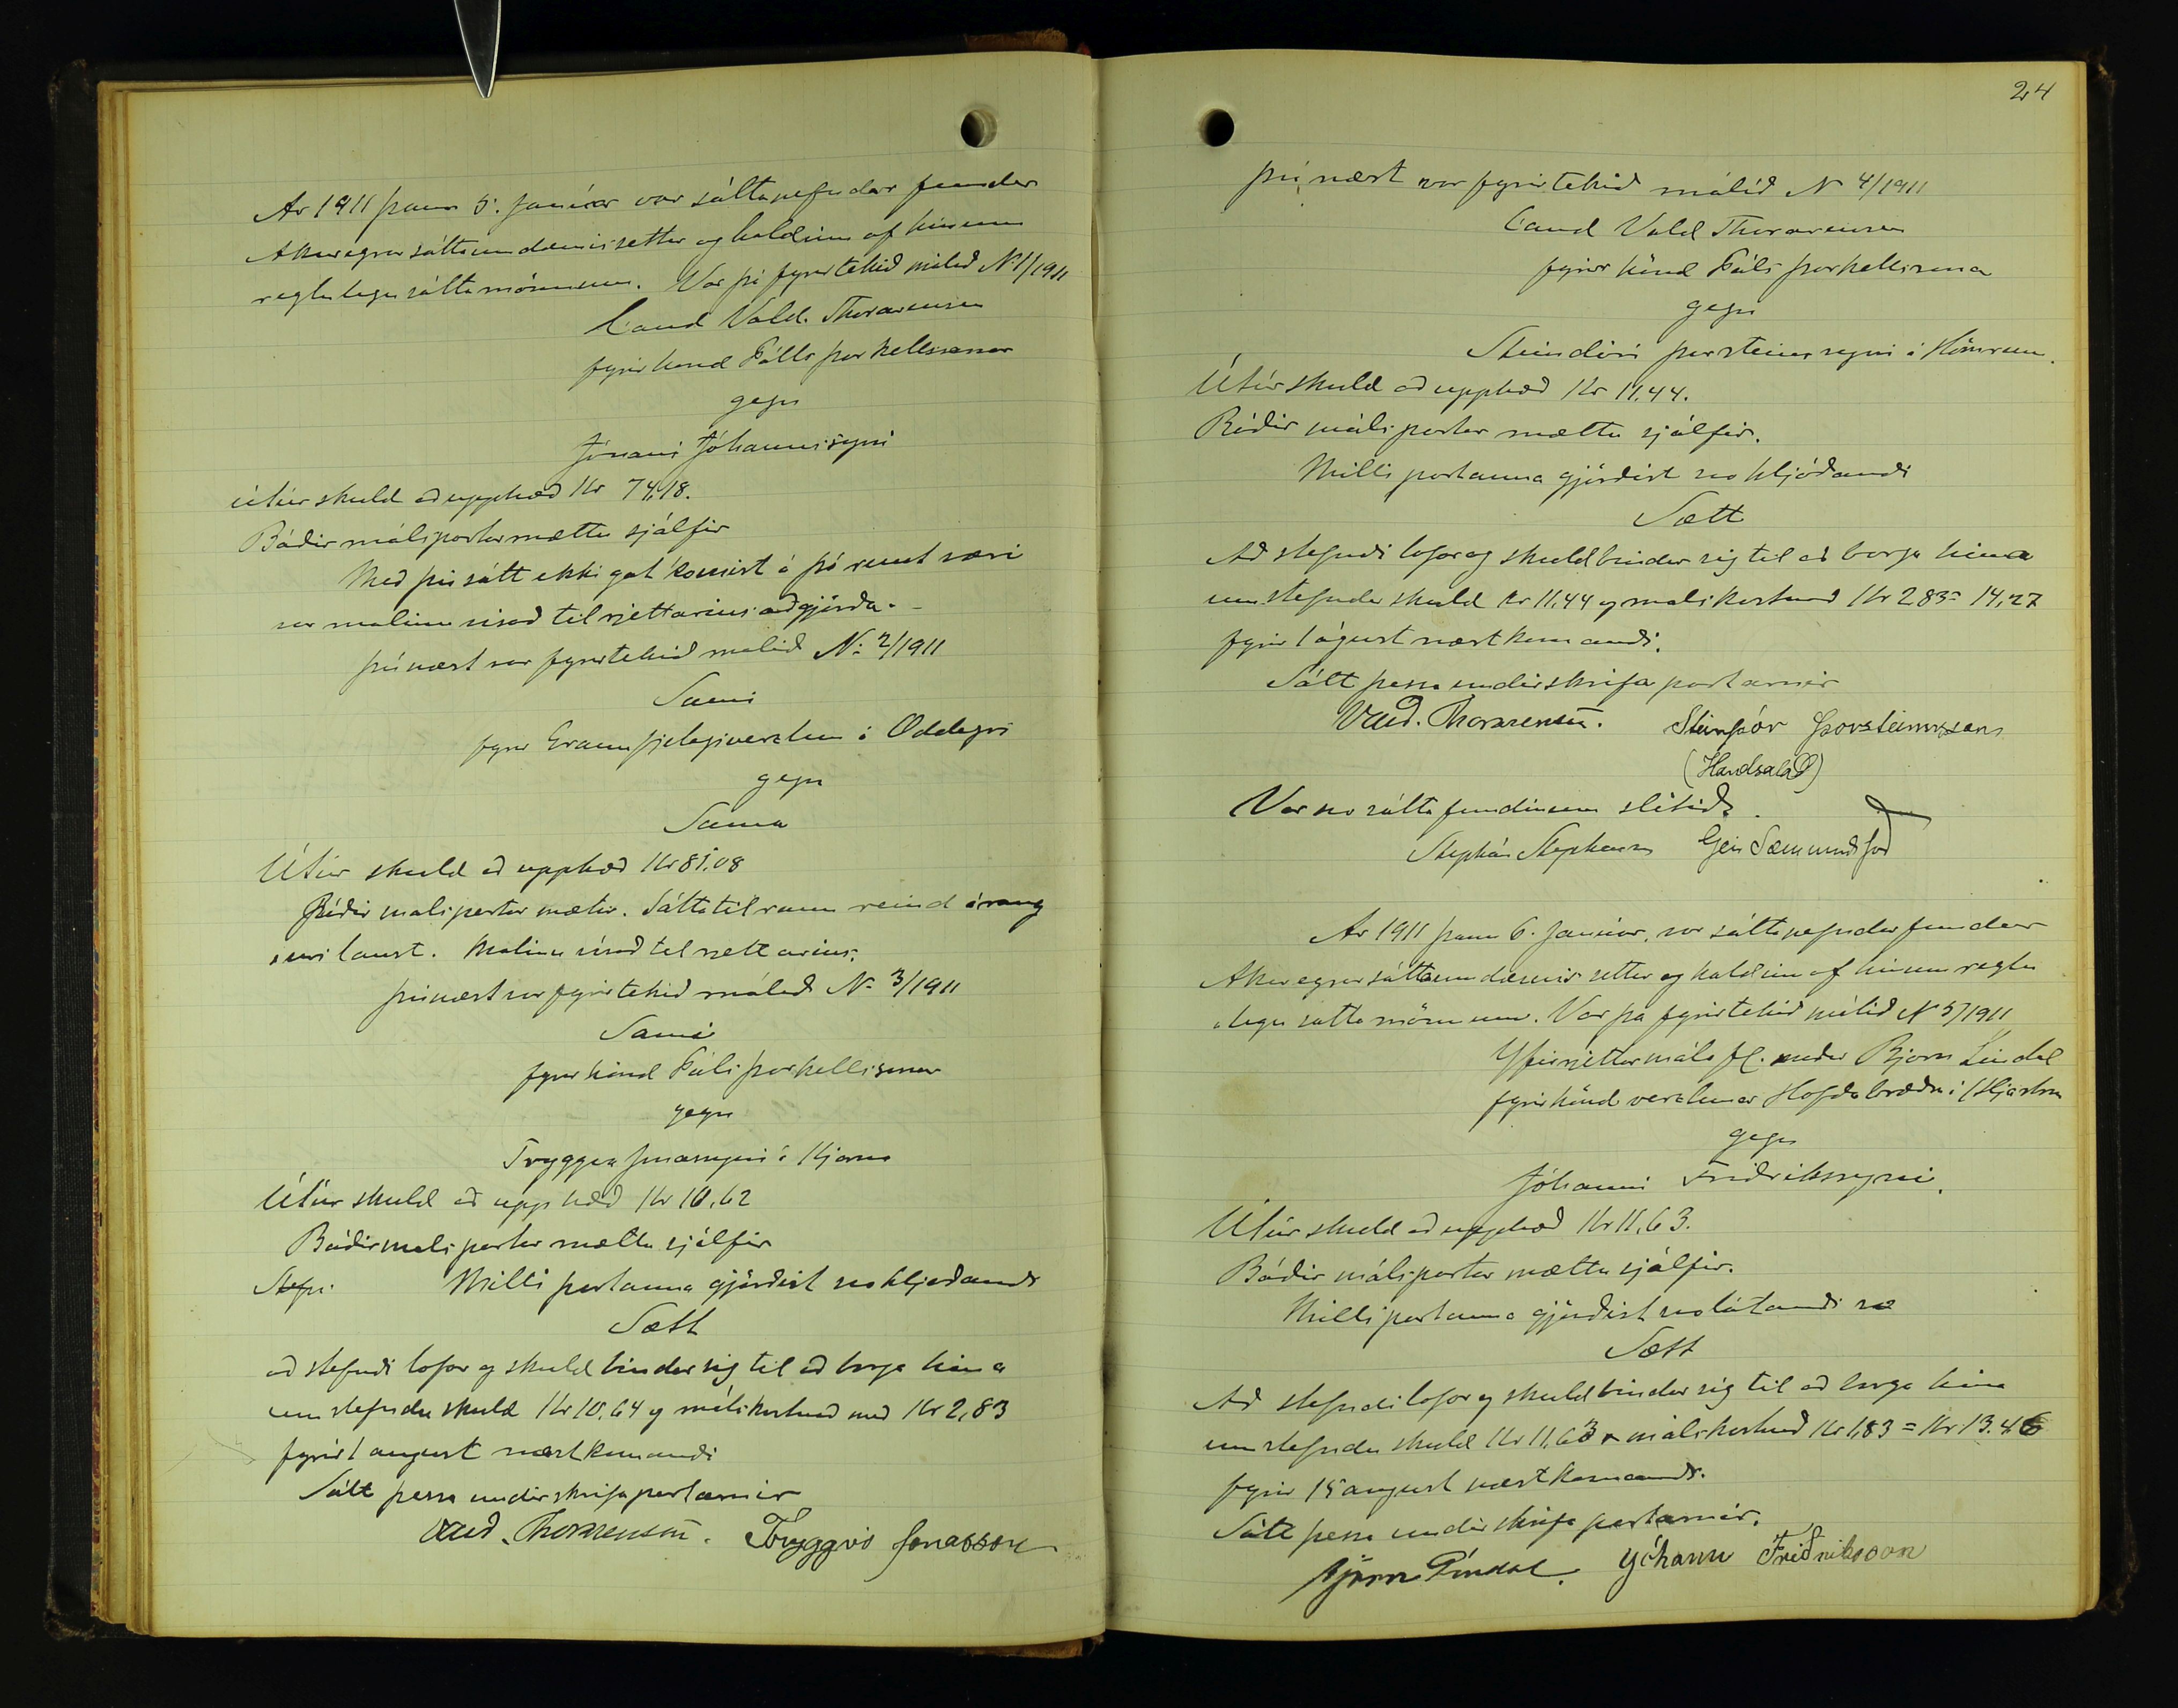 Ár 1911 þann 5. janúar var sáttanefndar fundur
Akureyrar sáttaumdæmis settur og haldinn af hinum
reglulegu sáttamönnum. Var þá fyrirtekið málið N: 1/1911
Cand Vald. Thorarensen
fyrir hönd Páls Þorkelssonar
gegn
Jónasi Jóhannssyni
útúr skuld að upphæð Kr 74,18.
Báðir málspartar mættu sjálfir
Með því sátt ekki gat komist á þó reynt væri
var málinu vísað til rjettarins aðgjörða.-
Þvínæst var fyrirtekið málið N: 2/1911
Sami
fyrir Gránufjelagsverzlun á Oddeyri
gegn
Sama
Útúr skuld að upphæð Kr 81.08
Báðir málspartar mættu. Sáttatilraun reind árang
urslaust. Málinu vísað til rjettarins.
Þvínæst var fyrirtekið málið N: 3/1911
Sami
fyrir hönd Páls Þorkelssonar
gegn
Tryggva Jónassyni á Kjarna
Útúr skuld að upphæð Kr 10,62
Báðir málspartar mættu sjálfir
Stefn. Milli partanna gjörðist svohljóðandi
Sætt
að stefndi lofar og skuldbindur sig til að borga hina
umstefndu skuld Kr 10,64 og málskostnað með Kr 2,83
fyrir 1 august næstkomandi
Sátt þessa undirskrifa partarnir
Vald. Thorarensen. Tryggvi Jónasson
24
Þvínæst var fyrirtekið málið N 4/1911
Cand Vald Thorarensen
fyrir hönd Páls Þorkellssona
gegn
Steindóri Þorsteinssyni á Hömrum.
Útúr skuld að upphæð Kr 11,44.
Báðir málspartar mættu sjálfir.
Milli partanna gjörðist svohljóðandi
Sætt
Að stefndi lofar og skuldbindur sig til að borga hina
umstefndu skuld kr 11,44 og málskostnað Kr 2,83 = 14,27
fyrir 1 ágúst næstkomandi.
Sátt þessa undirskrifa partarnir
Vald. Thorarensen. Steinþór Þorsteinsson
(Handsalað)
Var svo sáttafundinum slitið.
Stephán Stephensen Geir Sæmundsson
Ár 1911 þann 6. janúar, var sáttanefndar fundur
Akureyrar sáttaumdæmis settur og haldinn af hinum reglu
legu sáttamönnum. Var þá fyrirtekið málið N 5/1911
Yfirrjettarmálafl. maður Björn Líndal
fyrir hönd verzlunar Höfða
gegn
Jóhanni Friðrikssyni.
Útúr skuld að upphæð Kr 11,63.
Báðir málspartar mættu sjálfir.
Milli partanna gjörðist svolátandi
Sætt
Að stefndi lofar og skuldbindur sig til að borga hina
umstefndu skuld Kr 11,63 + málskostnað Kr 1,83 = Kr 13.46
fyrir 15 august næstkomandi.
Sátt þessa undirskrifa partarnir.
Björn Líndal. Jóhann Friðriksson